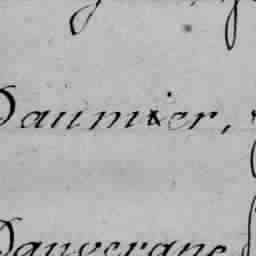 Daumier,
Dauvergne